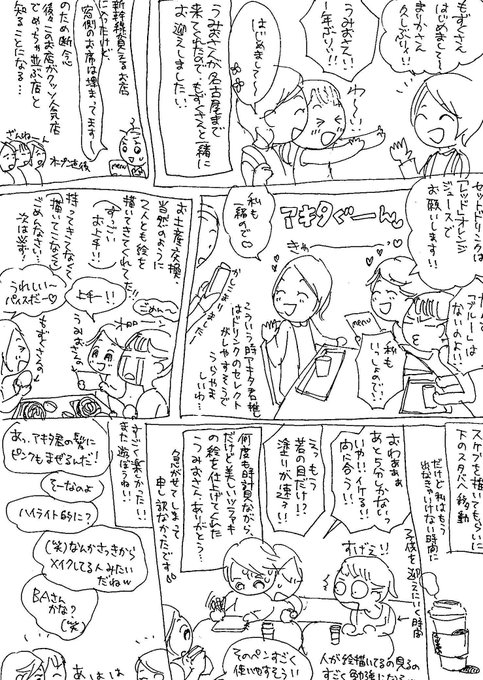 もずくさん
はじめまして〜
まりかさん
久しぶり!!
うみおさん!!
一年ぶり!!
わ〜い
はじめまして〜
うみおさんが名古屋まで
来てくれたので、もずくさんと一緒に
お迎えしました!!
新幹線見えるお店
窓側のお席は埋まってます
のため断念
後々このお店がアッツ人気店
でめっちゃ並ぶ店と
知ることになる…
ざんねーん
オープン直後
menu
セットドリンクは
「レッド」オレンジ
ジュースで
お願いします!!
なんで
「ブルー」は
ないのよ!!
私も
いっしょので!!
menu
アキタぐーん
きゃー
私も
一緒ので♡
こういう時アキタ君推し
はドリンクのセレクト
がしやすそうで
うらやま
しいわ…
お土産交換、
当然のように
2人とも絵を
描いてきてくれてた!!
すっごい
お上手!!
持ってきてなくて
描いてなくて
ごめんなさい…
次は必ず!
ごめん〜
上手ー!!
うれしい〜
バイスだー♡
うみおさんの
もずくさんの
スケブを描いてもらいに
下のスタバへ移動
だけど私はもう
出なきゃいけない時間
子供を迎えにいく時間
おわぁぁ
あとちょっとしかないっ
いや!!イケる!!
向に合う!!
えっもう
君の目だけ!?
塗りが速ぅ!!
何度も時計見ながら、
だけど美しいツラアキ
の絵を仕上げてくれた
うみおさん、ありがとう…
急がせてしまって
申し訳なかったです
すげえ!!
すごく楽しかった!!
また遊ぼうね!!
あっ、アキタ君の髪に
ピンクもまぜるんだ!
そーなのよ
ハイライト的に?
(笑)なんかさっきから
メイクしてる人みたい
だねw
BAさん
かな?
(笑)
あはは
そのペンすごく
使いやすそう!!
人が絵描いてるの見るの
すごく勉強になる〜